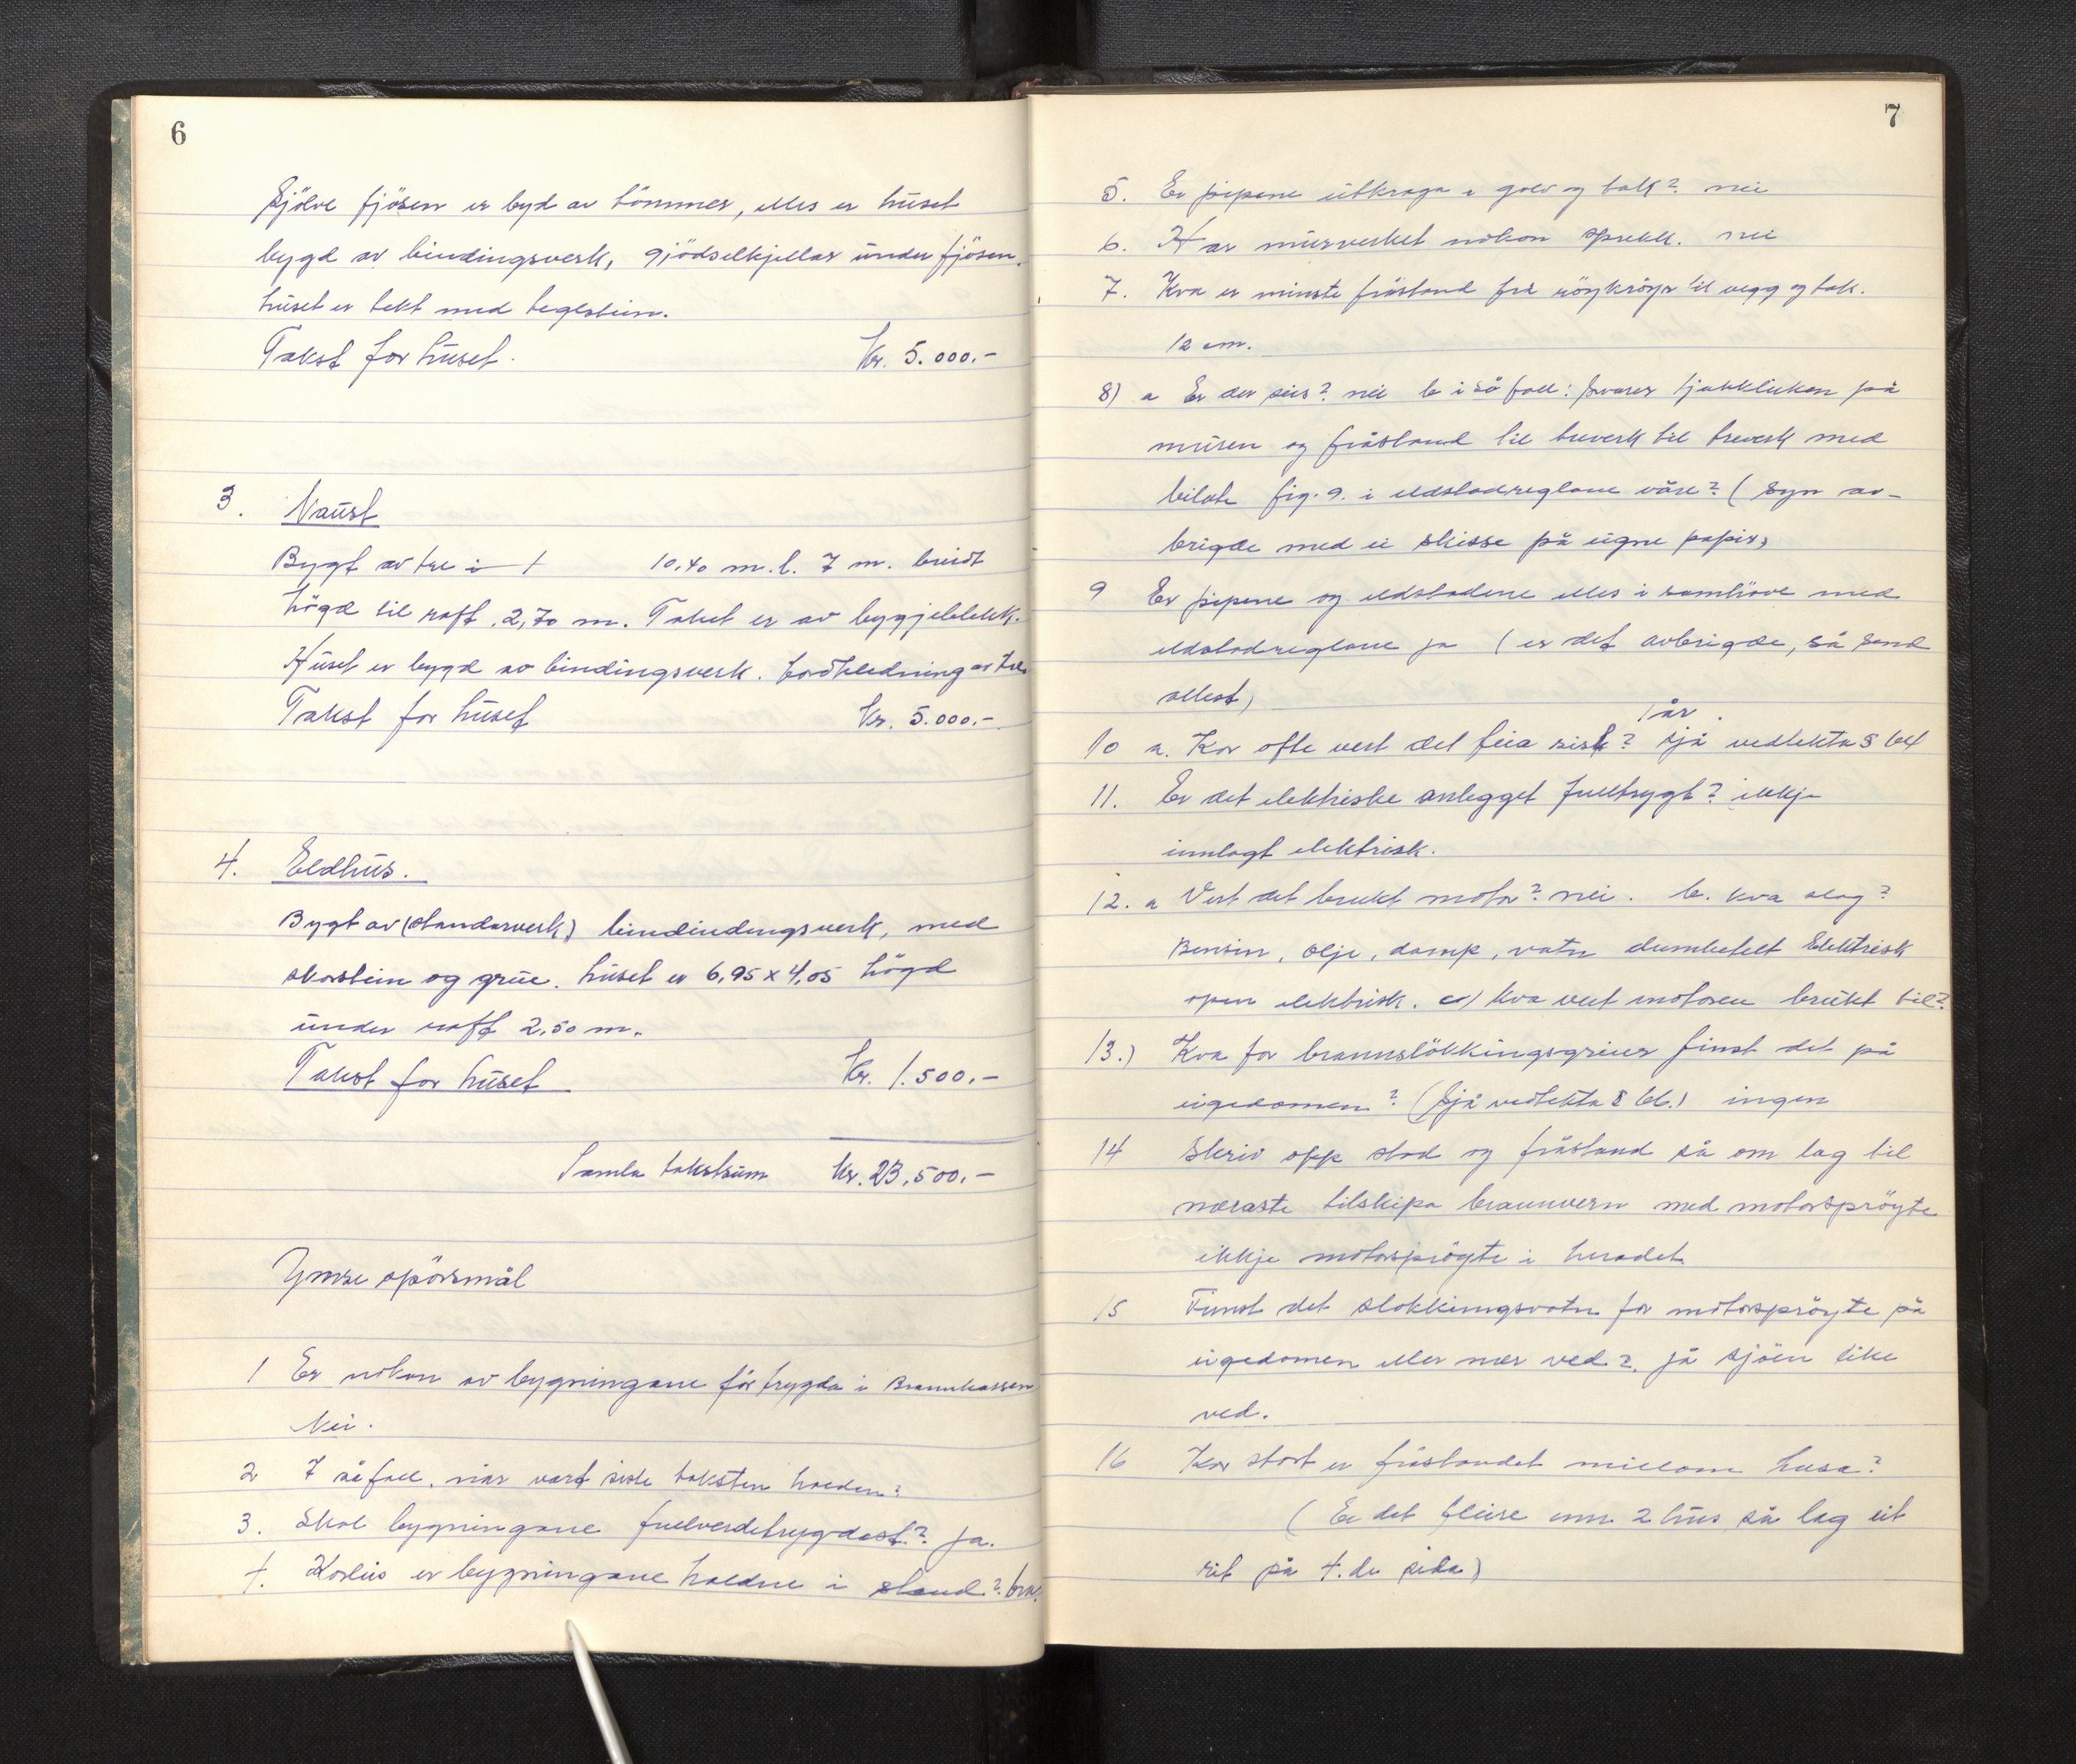 6
Sjölve fjösen er byd av tömmer, elles er huset
bygd av bindingsverk, gjödselkjellar under fjösen.
huset er tekt med teglstein.
Takst for huset. kr. 5.000.-
3. Naust
Bygt av tre i 1 10,40 m. l. 7 m. breidt
högd til raft, 2,70 m. Taket er av bygjeblekk.
Huset er bygd av bindingsverk. bordkledning av tre
Takst for huset kr. 5.000.-
4. Eldhus.
Bygt av (standarverk) bindindingsverk, med
skorstein og grue. huset er 6,95 x 4,05 högd
under raft 2,50 m.
Takst for huset kr. 1.500.-
Samla takstsum kr. 23.500.-
Ymse spörsmål
1 Er nokon av bygningane för trygda i Brannkassen
Nei.
2 I så fall, når vart siste taksten halden?
3. Skal bygningane fullverdetrygdast? ja.
4. Korleis er bygningane haldne i stand? bra.
7
5. Er pipene utkraga i golv og tak? nei
6. Har murverket nokon sprekk. nei
7. Kva er minste fråstand frå röykröyr til vegg og tak.
12 cm.
8) a Er der seis? nei b i så fall: svarer tjukkleiken på
muren og fråstand til treverk til treverk med
bilete fig. 9. i eldstadreglane våre? (Syn av-
brigde med ei skisse på eigne papir)
9 Er pipene og eldstadene elles i samhöve med
eldstadreglane ja (er det avbrigde, så send
attest)
1 år.
10 a. Kor ofte vert det feia sist? sjå vedtekta § 64
11. Er det elektriske anlegget fulltrygt? ikkje
innlagt elektrisk.
12. a Vert det brukt motor? nei. b. kva slag?
Bensin, olje, damp, vatn elumbetelt Elektrisk
open elektrisk. c) kva vert motoren brukt til?
13.) Kva for brannslökkingsgreier finst det på
eigedomen? (Sjå vedtekta § 66.) ingen
14 Skriv opp stad og fråstand så om lag til
næraste tilskipa brannvern med motorspröyte
ikkje motorspröyte i heradet
15 Finst det slokkingsvatn for motorspröyte på
eigedomen eller nær ved? ja sjöen like
ved.
16 Kor stort er fråstandet millom husa?
(Er det fleire enn 2 hus så lag eit
rit på 4. de sida)